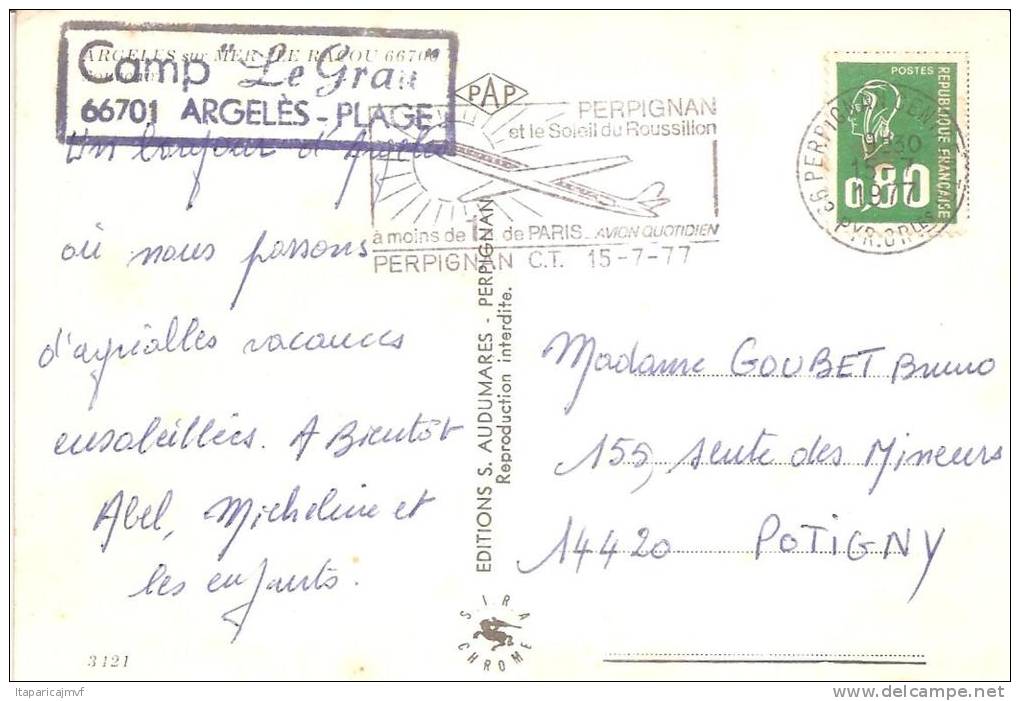 ARGELES sur MER - LE RACOU 66700
Camp "Le Grau"
66701 ARGELÈS - PLAGE
Un bonjour d'Argelès
où nous passons
d'agréables vacances
ensoleillées. A Bientôt
Abel, Micheline et
les enfants.
3421
PAP
PERPIGNAN
et le Soleil du Roussillon
à moins de 1h de PARIS_ AVION QUOTIDIEN
PERPIGNAN C.T. 15-7-77
EDITIONS S. AUDUMARES - PERPIGNAN
Reproduction interdite.
SIRA
CHROME
POSTES
REPUBLIQUE FRANÇAISE
0,80
66 PERPIGNAN
15-7
1977
PYR. OR LES
Madame GOUBET Bruno
155, sente des Mineurs
14420 POTIGNY
Itaparicajmvf
www.delcampe.net